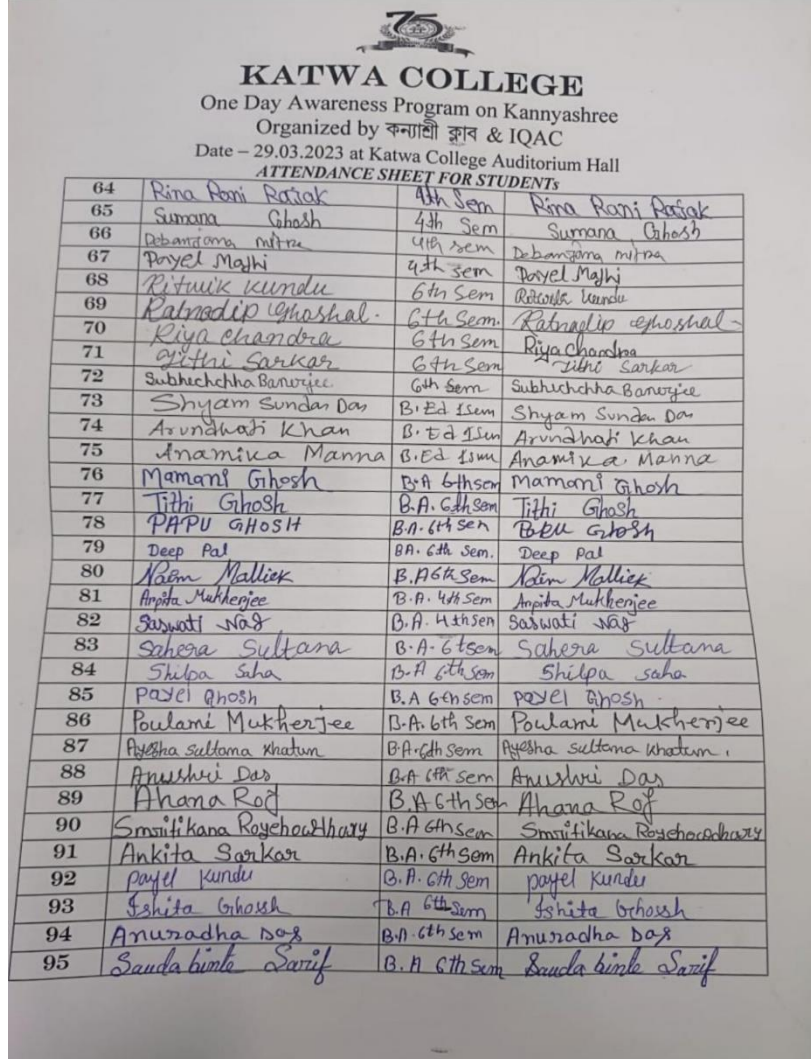 75
KATWA COLLEGE
One Day Awareness Program on Kannyashree
Organized by কন্যাশ্রী ক্লাব & IQAC
Date – 29.03.2023 at Katwa College Auditorium Hall
ATTENDANCE SHEET FOR STUDENTs
64 Rina Rani Rajak 4th Sem Rina Rani Rajak
65 Sumana Ghosh 4th Sem Sumana Ghosh
66 Debanjana mitra 4th sem Debanjana mitra
67 Payel Majhi 4th sem Payel Majhi
68 Rituik kundu 6th Sem kundu
69 Ratnadip Ghoshal. 6th Sem. Ratnadip Ghoshal
70 Riya chandra 6th Sem Riya Chandra
71 Tithi Sarkar 6th Sem Tithi Sarkar
72 Subhechchha Banerjee 6th Sem Subhechchha Banerjee
73 Shyam Sundar Das B.Ed 1sem Shyam Sundar Das
74 Arundhati Khan B.Ed 1Sem Arundhati Khan
75 Anamika Manna B.Ed 1sem Anamika. Manna
76 Mamani Ghosh B.A 6thsem Mamani Ghosh
77 Tithi Ghosh B.A. 6th sem Tithi Ghosh
78 PAPU GHOSH B.A. 6th Sen Ghosh
79 Deep Pal BA. 6th Sem. Deep Pal
80 Naim Mallick B.A 6th Sem Naim Mallick
81 Arpita Mukherjee B.A. 4th Sem Arpita Mukherjee
82 Saswati Nag B.A. 4th sem Saswati Nag
83 Sahera Sultana B.A. 6tsem Sahera Sultana
84 Shilpa Saha B.A 6th sem Shilpa saha
85 Payel Ghosh B.A 6th sem payel Ghosh.
86 Poulami Mukherjee B.A. 6th Sem Poulami Mukherjee
87 Ayesha sultana Khatun B.A. 6th Sem Ayesha sultana Khatun.
88 Anushri Das B.A 6th sem Anushri Das
89 Ahana Roy B.A 6th Sem Ahana Roy
90 Smritikana Roychowdhary B.A 6th Sem Smritikana Roychowdhary
91 Ankita Sarkar B.A. 6th Sem Ankita Sarkar
92 payel Kundu B.A. 6th Sem payel Kundu
93 Ishita Ghosh B.A 6th Sem Ishita Ghosh
94 Anuradha Das B.A. 6th sem Anuradha Das
95 Sauda binte Sarif B.A 6th sem Sauda binte Sarif